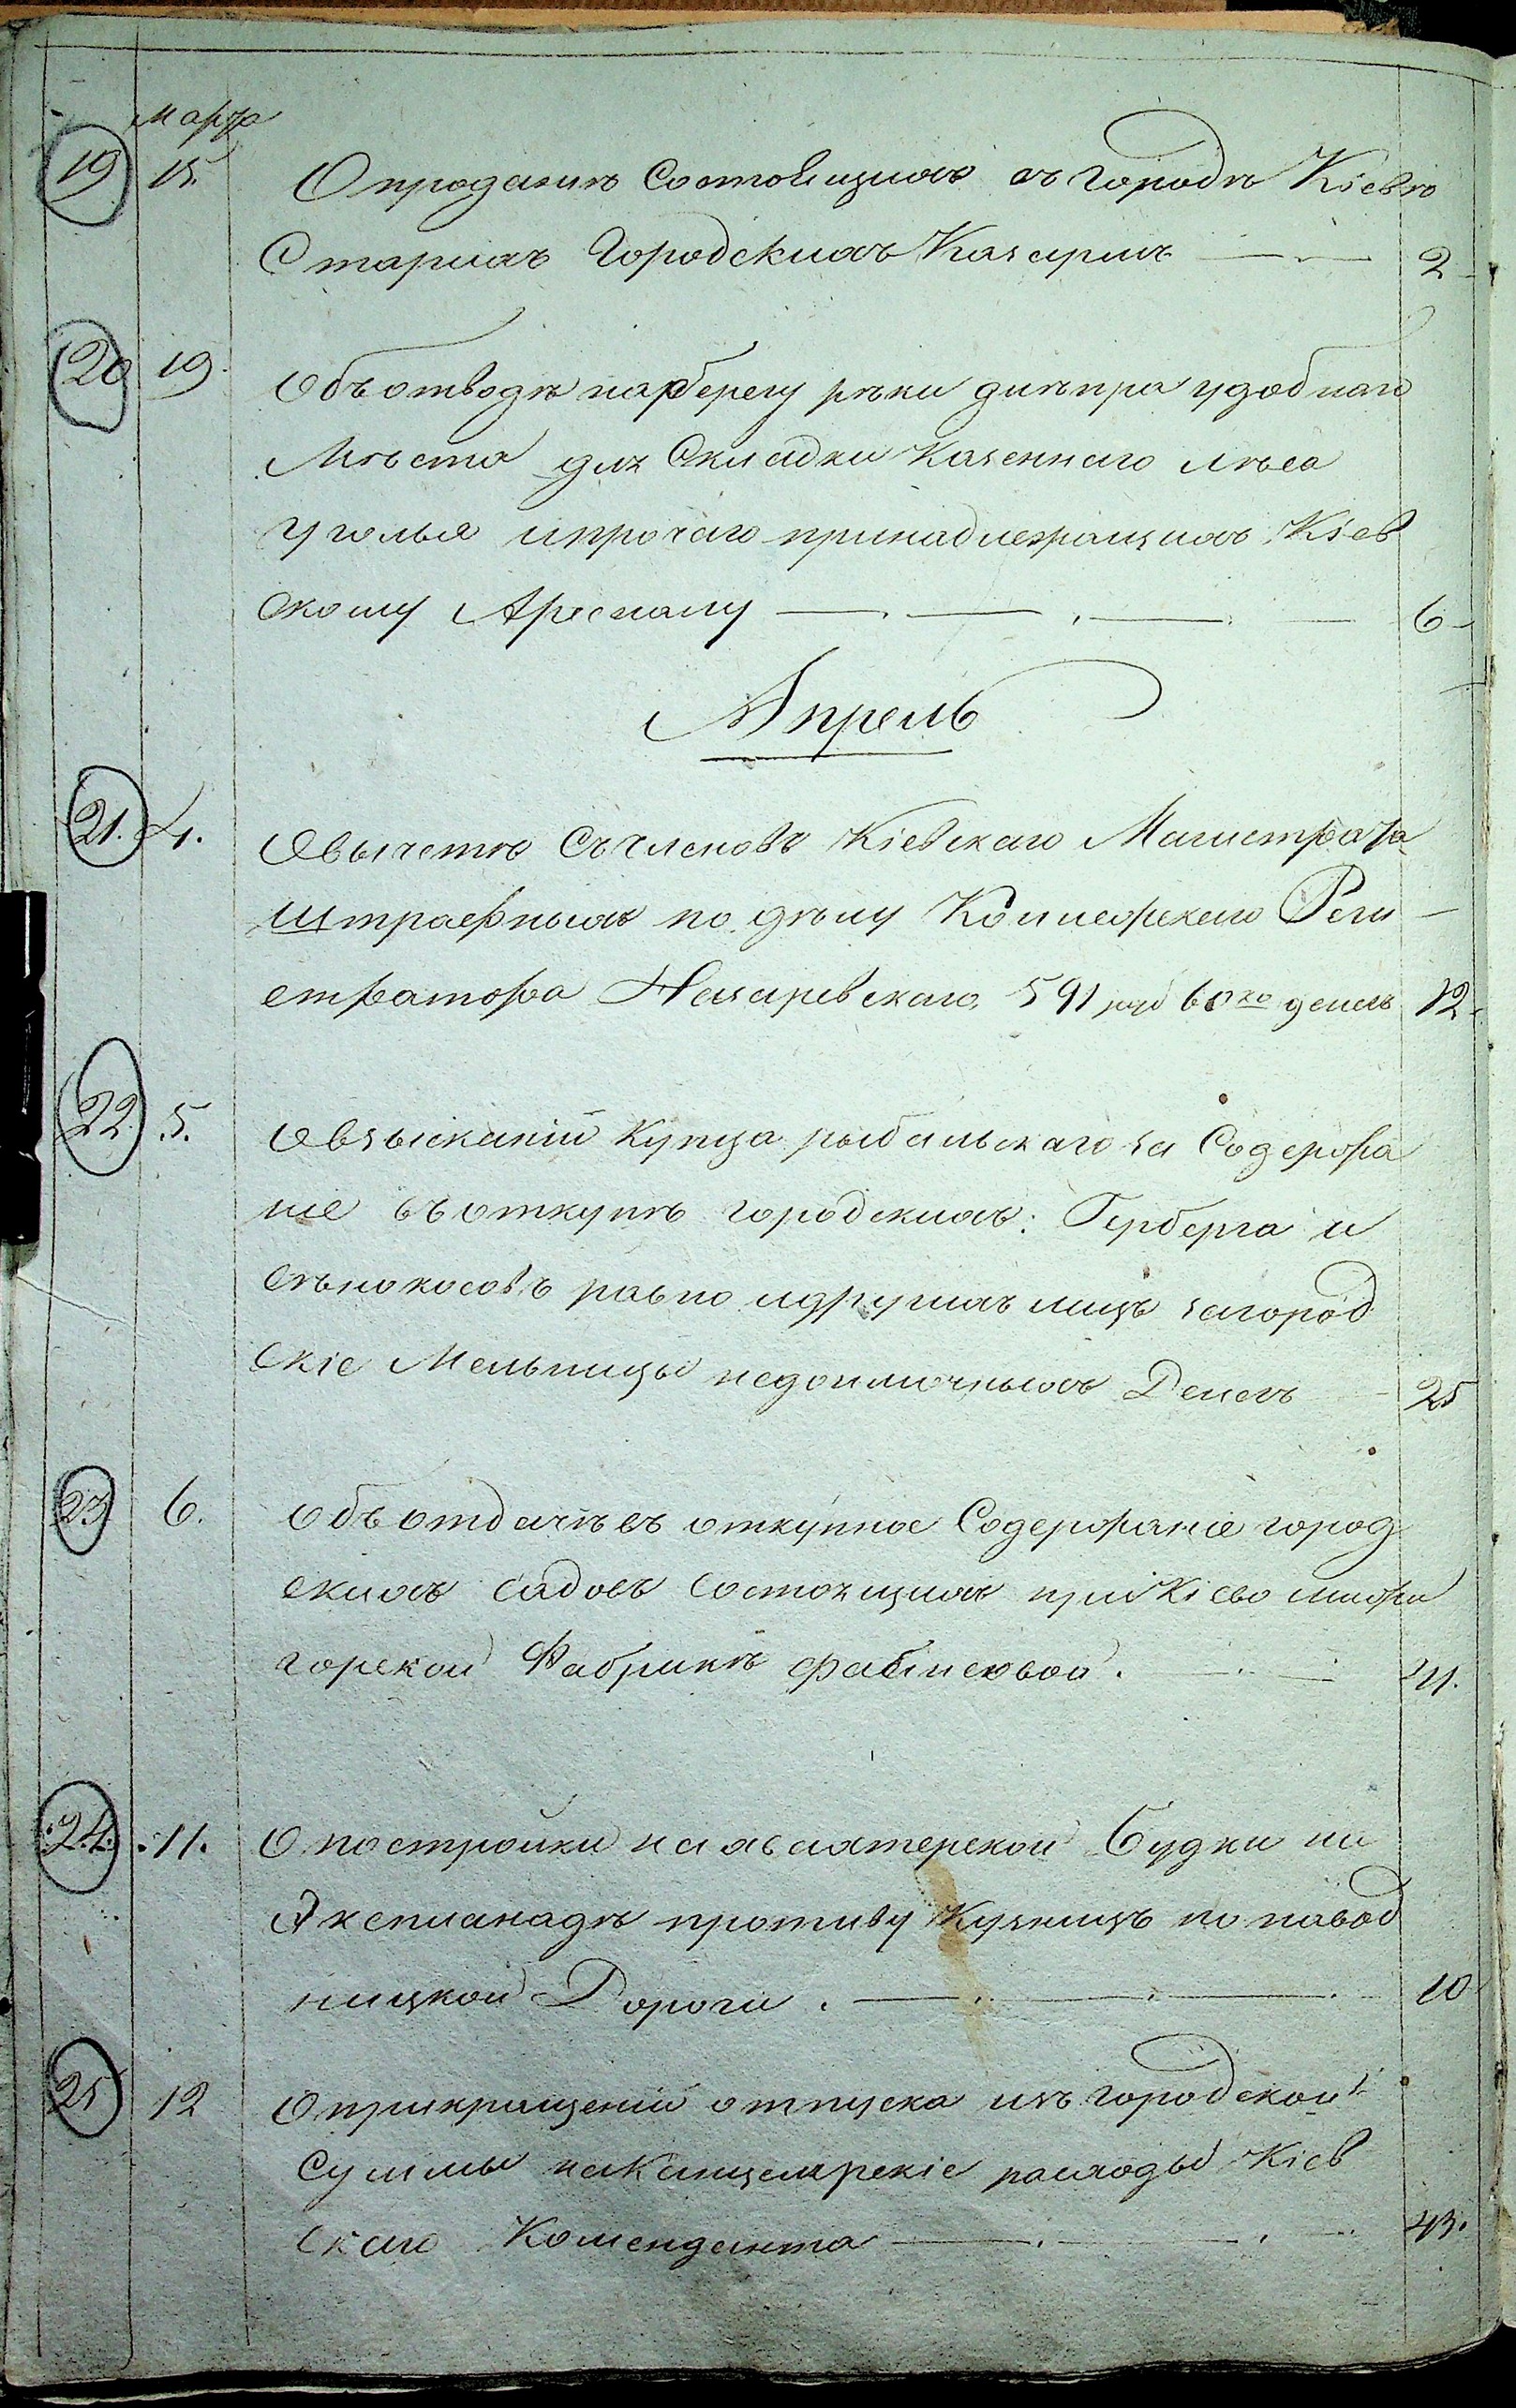 Марта
19 15. О продажѣ состоящихъ въ городѣ Кіевѣ
старыхъ городскихъ Казармъ 2
20 19. Объ отводѣ на берегу рѣки днѣпра удобнаго
мѣста для складки казеннаго лѣса
уголья и прочаго принадлежащихъ Кіев
скому Арсеналу 6
Апрель
21. 4. О вычетѣ съ членовъ Кіевскаго Магистрата
штрафныхъ по дѣлу Коллежскаго Реги
стратора Назаревскаго 591 ру 60 ко денегъ 12
22. 5. О взысканіи купца рыбальскаго за содержа
ніе въ откупѣ городскихъ: Герберга и
сѣнокосовъ равно и другихъ лицъ за город
скіе мельницы недоимочныхъ Денегъ 25
23 6. Объ отдачѣ въ откупное содержаніе город
скихъ садовъ состоящихъ при Кіево межи
горской Фабрикѣ фаянсовой. 21.
24. 11. О постройки на гауптерской будки на
Эксланадѣ противу Кузницъ по навод
ницкой Дороги. 10
25 12 О прикращеніи отпуска изъ городской
суммы на Канцелярскіе расходы Кіев
скаго Коменданта 43.